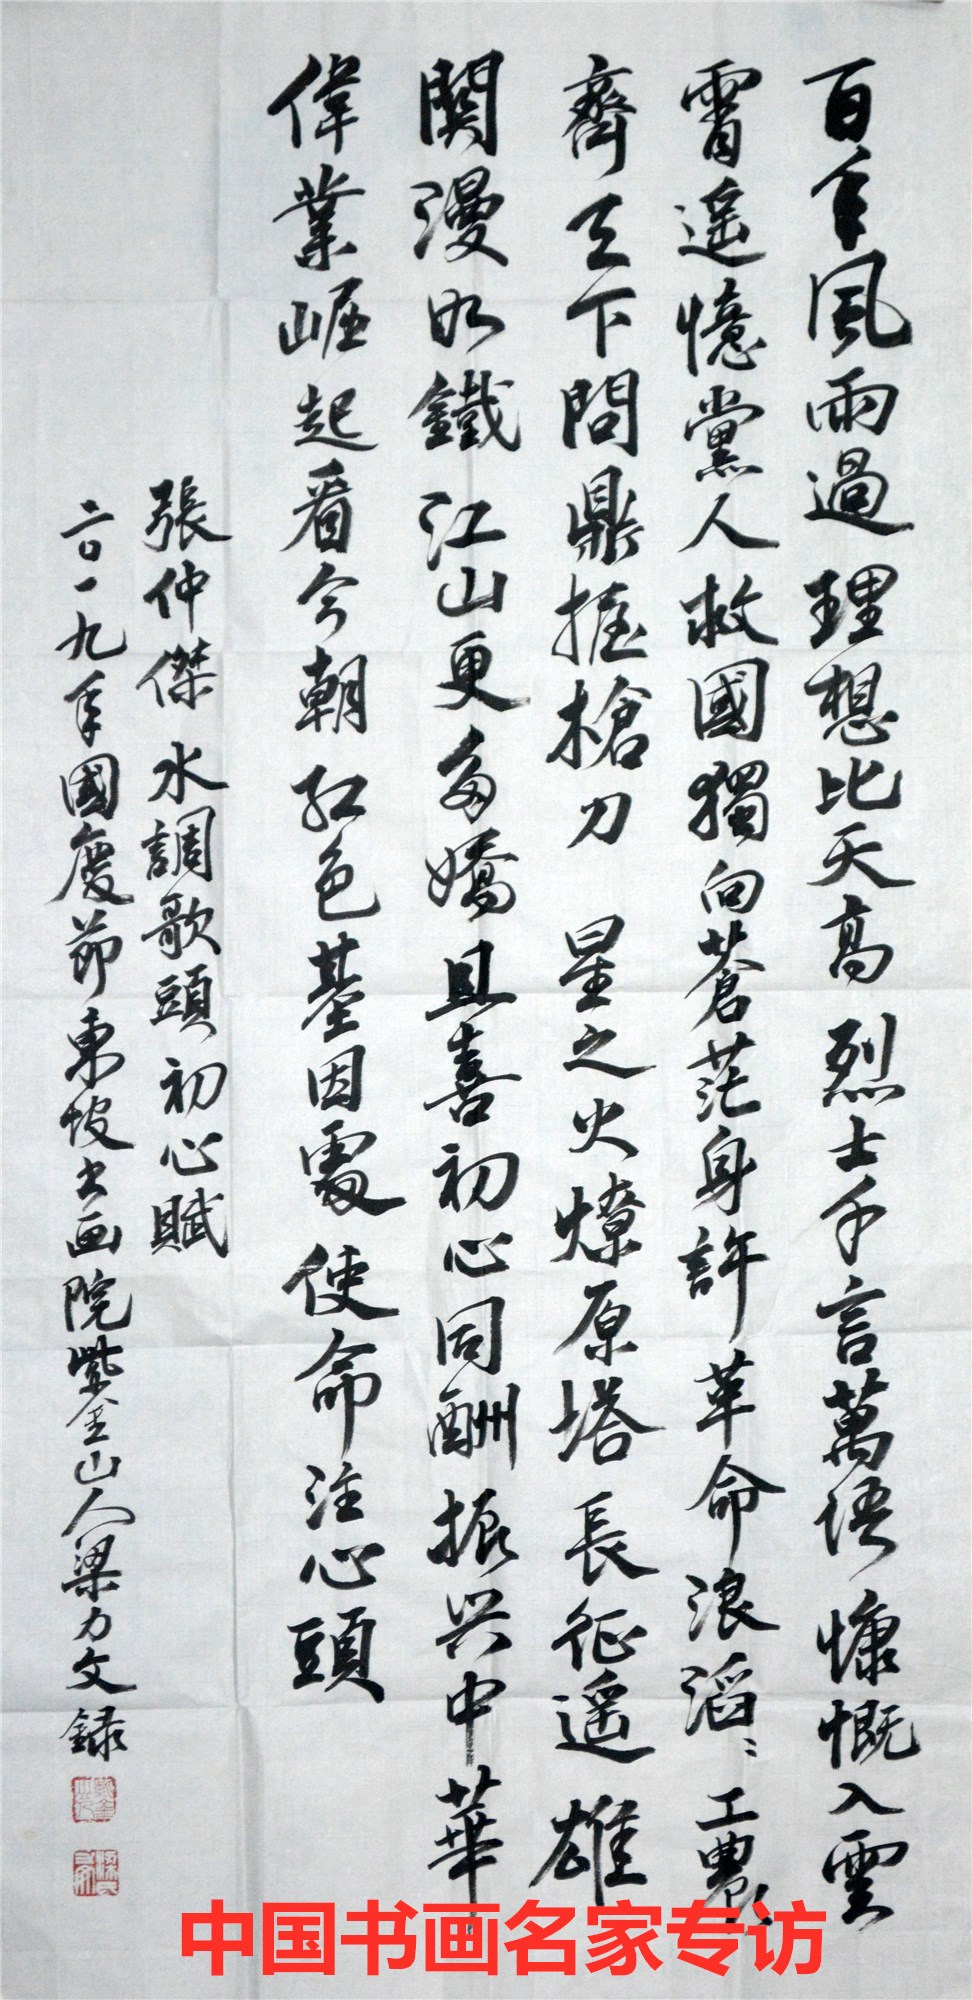 百年風雨過理想比天高烈士千言萬語慷慨入雲
霄遥憶黨人救國獨向蒼茫身許革命浪滔〻工農
齊天下問鼎握槍刀星之火燎原塔長征遥雄
関漫如鐵江山更多嬌且喜初心同酬振兴中華
偉業崛起看今朝紅色基因處使命注心頭
張仲傑水調歌頭初心賦
二〇一九年國慶節東坡书画院紫金山人梁力文録
中国书画名家专访